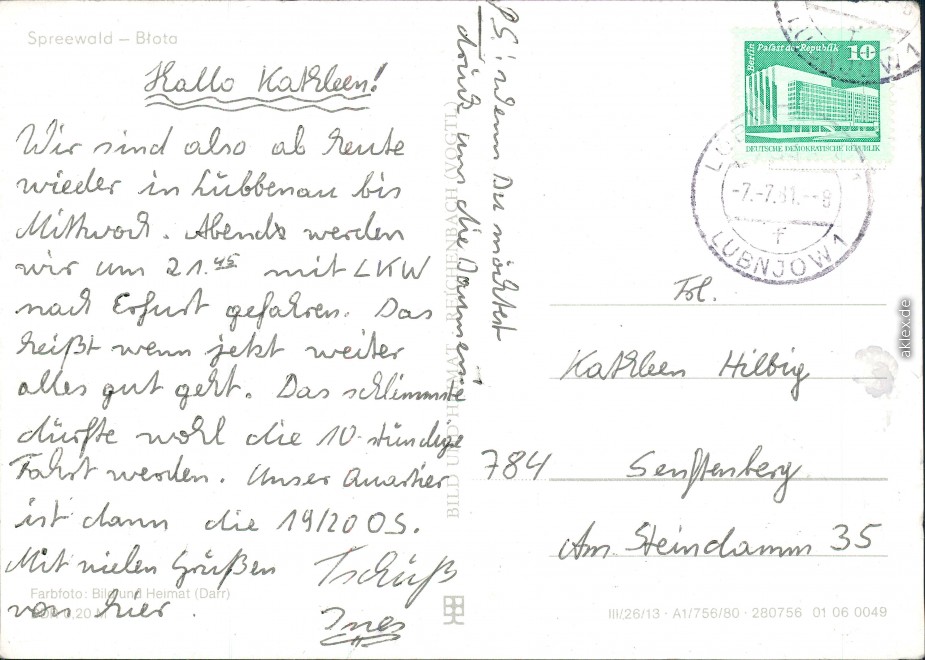 Spreewald – Błota
Hallo Kathleen!
Wir sind also ab heute
wieder in Lübbenau bis
Mittwoch. Abends werden
wir um 21.45 mit LKW
nach Erfurt gefahren. Das
heißt wenn jetzt weiter
alles gut geht. Das schlimmste
dürfte wohl die 10-stündige
Fahrt werden. Unser Quartier
ist dann die 19/20 OS.
Mit vielen Grüßen
von hier.
Tschüß
Ines
Farbfoto: Bild und Heimat (Darr)
0,20 M
P.S! wenn Du möchtest
drück uns die Daumen!
BILD UND HEIMAT REICHENBACH (VOGTL)
Berlin Palast der Republik 10
DEUTSCHE DEMOKRATISCHE REPUBLIK
LUBNJOW 1
-7.-7.81.--9
f
LUBNJOW 1
Frl.
Kathleen Hilbig
784 Senftenberg
Am Steindamm 35
III/26/13 · A1/756/80 · 280756 01 06 0049
aklex.de